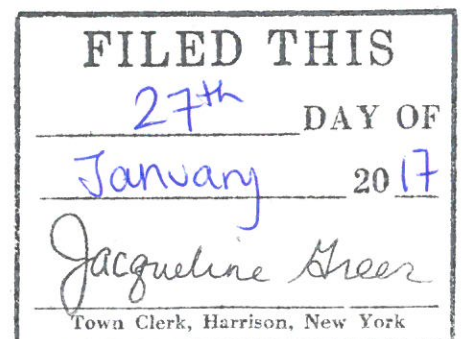 FILED THIS
27th DAY OF
January 20 17
Jacqueline Greer
Town Clerk, Harrison, New York